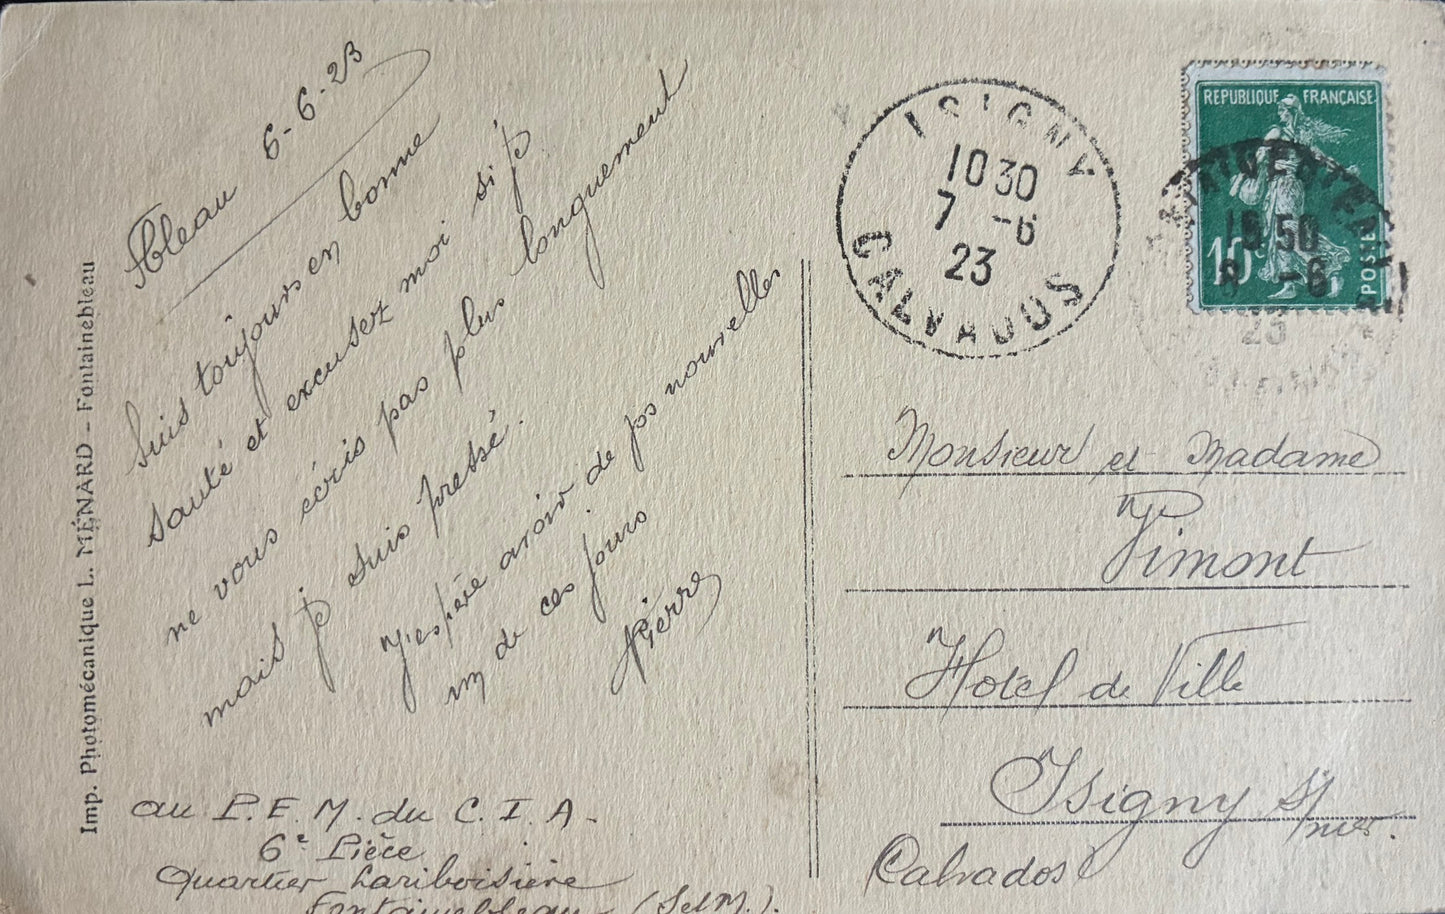 Imp. Photomécanique L. MÉNARD - Fontainebleau
Fbleau 6-6-23
Suis toujours en bonne
santé et excusez moi si je
ne vous écris pas plus longuement
mais je suis pressé.
J'espère avoir de vos nouvelles
un de ces jours
Pierre
au P.E.M. du C.I.A.
6e Pièce
Quartier Lariboisière
Fontainebleau (S et M).
ISIGNY
10 30
7 -6
23
CALVADOS
REPUBLIQUE FRANÇAISE
15c
POSTES
50
-6
23
Monsieur et Madame
Pimont
Hotel de Ville
Isigny s/mer.
Calvados